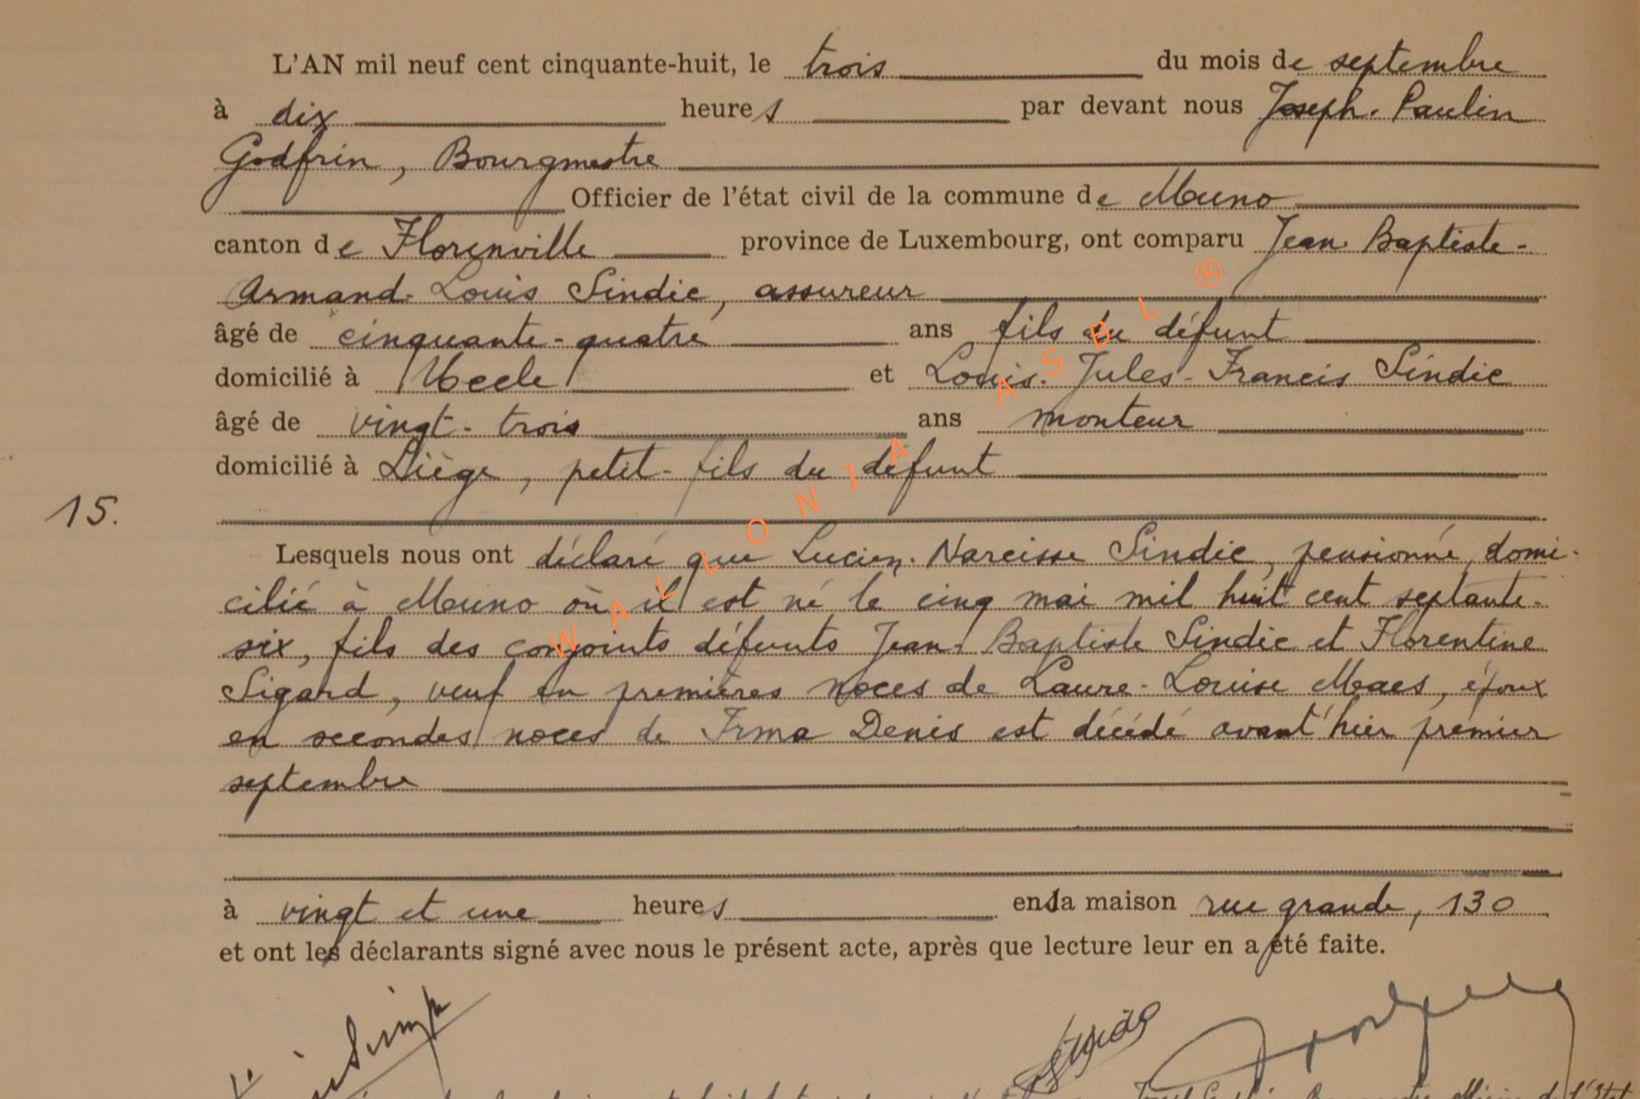 L'AN mil neuf cent cinquante-huit, le trois du mois de septembre
à dix heures par devant nous Joseph-Paulin
Godfrin, Bourgmestre
Officier de l'état civil de la commune de Muno
canton de Florenville province de Luxembourg, ont comparu Jean-Baptiste-
Armand-Louis Sindic, assureur
âgé de cinquante-quatre ans fils du défunt
domicilié à Uccle et Louis-Jules-Francis Sindic
âgé de vingt-trois ans monteur
domicilié à Liège, petit-fils du défunt
15.
Lesquels nous ont déclaré que Lucien-Narcisse Sindic, pensionné, domi-
cilié à Muno où il est né le cinq mai mil huit cent septante-
six, fils des conjoints défunts Jean-Baptiste Sindic et Florentine
Sigard, veuf en premières noces de Laure-Louise Maes, époux
en secondes noces de Irma Denis est décédé avant'hier premier
septembre
à vingt et une heures en la maison rue grande, 130
et ont les déclarants signé avec nous le présent acte, après que lecture leur en a été faite.
WALLONIA ASBL ®